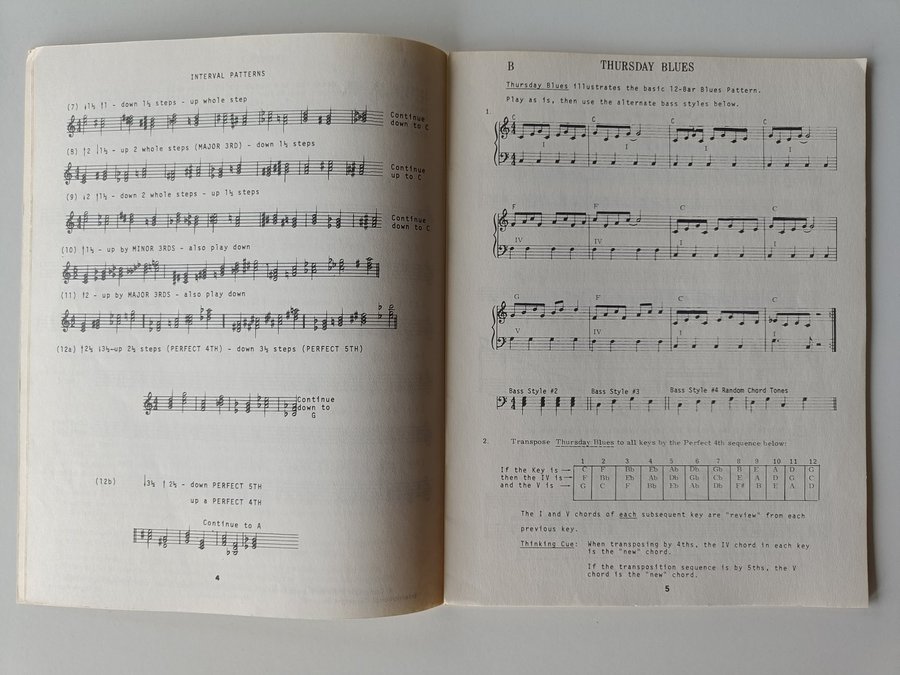 INTERVAL PATTERNS
(7) ↓1½ ↑1 - down 1½ steps - up whole step
Continue
down to C
(8) ↑2 ↓1½ - up 2 whole steps (MAJOR 3RD) - down 1½ steps
Continue
up to C
(9) ↓2 ↑1½ - down 2 whole steps - up 1½ steps
Continue
down to C
(10) ↑1½ - up by MINOR 3RDS - also play down
(11) ↑2 - up by MAJOR 3RDS - also play down
(12a) ↑2½ ↓3½-up 2½ steps (PERFECT 4TH) - down 3½ steps (PERFECT 5TH)
Continue
down to
G
(12b) ↓3½ ↑2½ - down PERFECT 5TH
up a PERFECT 4TH
Continue to A
4
B THURSDAY BLUES
Thursday Blues illustrates the basic 12-Bar Blues Pattern.
Play as is, then use the alternate bass styles below.
1.
C C C C
I I I
F F C C
IV IV I I
G F C C
V IV I I
Bass Style #2 Bass Style #3 Bass Style #4 Random Chord Tones
2. Transpose Thursday Blues to all keys by the Perfect 4th sequence below:
1 2 3 4 5 6 7 8 9 10 11 12
If the Key is C F Bb Eb Ab Db Gb B E A D G
then the IV is F Bb Eb Ab Db Gb Cb E A D G C
and the V is G C F Bb Eb Ab Db F# B E A D
The I and V chords of each subsequent key are "review" from each
previous key.
Thinking Cue: When transposing by 4ths, the IV chord in each key
is the "new" chord.
If the transposition sequence is by 5ths, the V
chord is the "new" chord.
5